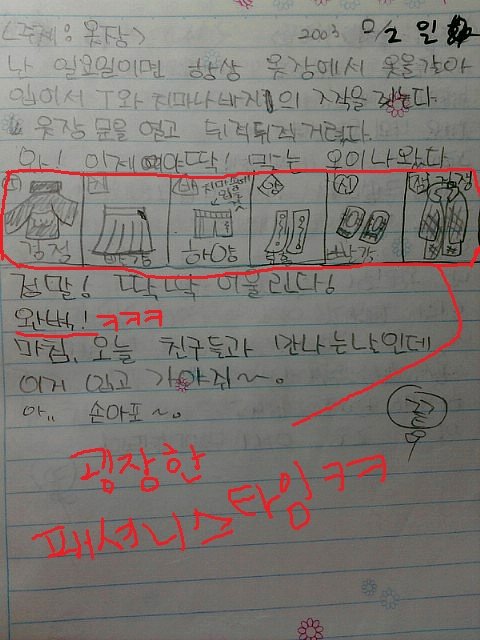 <주제: 옷장> 2003 일
난 일요일이면 항상 옷장에서 옷을 갈아
입어서 T와 치마나 바지의 짝을
옷장 문을 열고 뒤적뒤적 거렸다.
와! 이제야 딱! 맞는 옷이 나왔다
검정 빨강 하양 빨강
정말! 딱딱 어울린다!
완벽! ㅋㅋㅋ
마침, 오늘 친구들과 만나는 날인데
이거 입고 가야쥐~.
아.. 손아포~.
굉장한
패셔니스타임ㅋㅋ